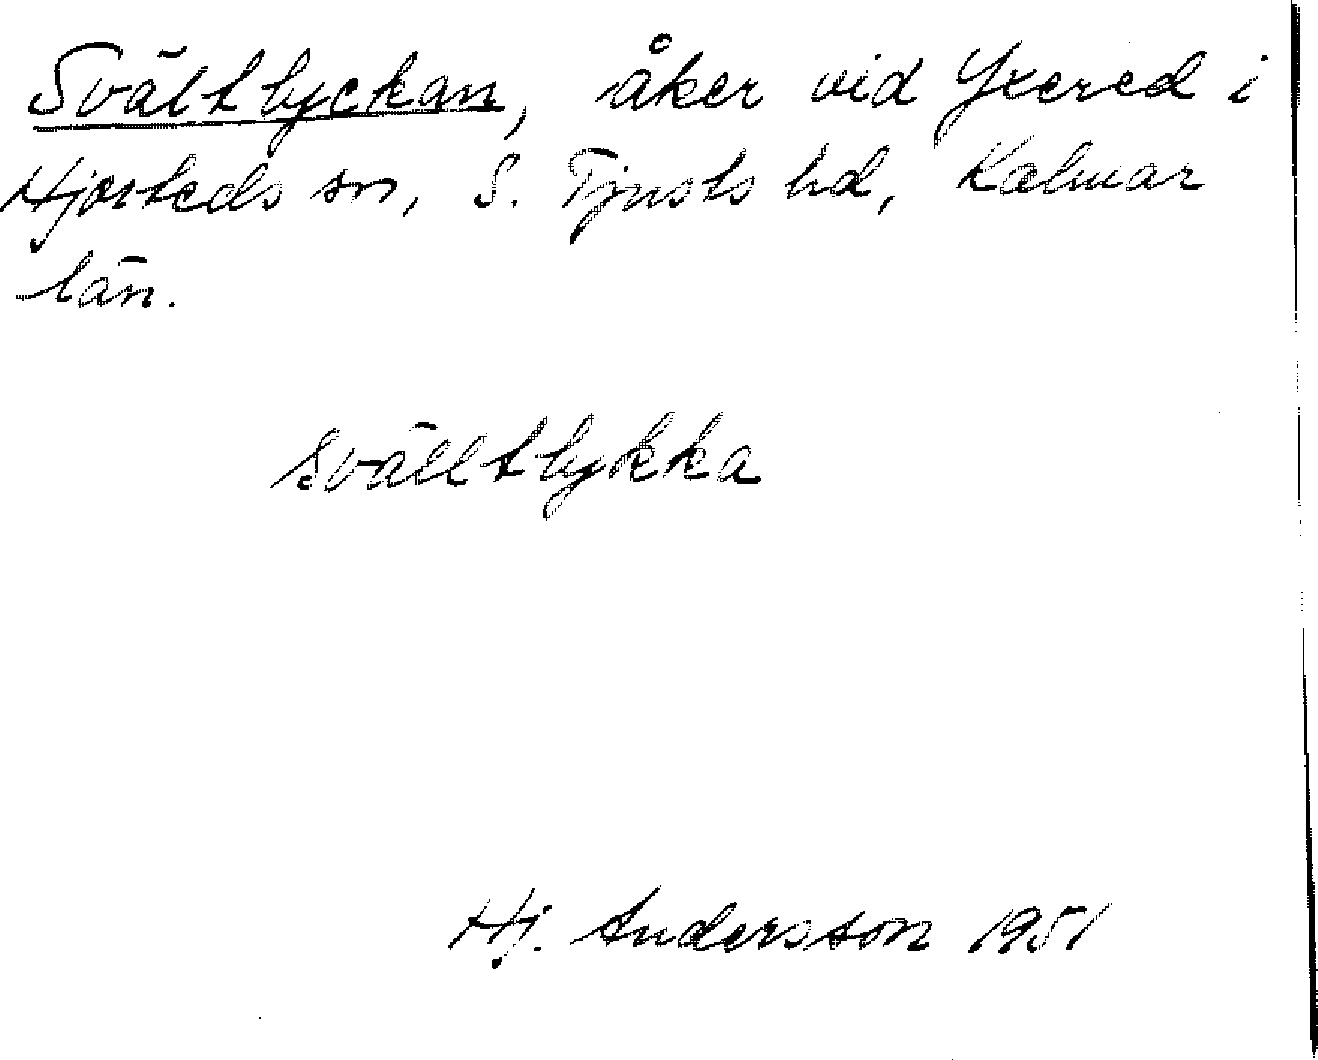 Svältlyckan, åker vid Yxered i
Hjorteds sn, S. Tjusts hd, Kalmar
län.
svälltlykka
Hj. Andersson 1951